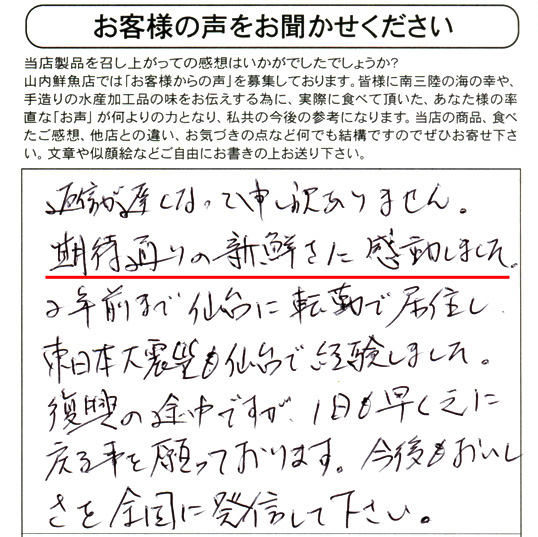 お客様の声をお聞かせください
当店製品を召し上がっての感想はいかがでしたでしょうか?
山内鮮魚店では「お客様からの声」を募集しております。皆様に南三陸の海の幸や、
手造りの水産加工品の味をお伝えする為に、実際に食べて頂いた、あなた様の率
直な「お声」が何よりの力となり、私共の今後の参考になります。当店の商品、食べ
たご感想、他店との違い、お気づきの点など何でも結構ですのでぜひお寄せ下さ
い。文章や似顔絵などご自由にお書きの上お送り下さい。
返信が遅くなって申し訳ありません。
期待通りの新鮮さに感動しました。
2年前まで仙台に転勤で居住し
東日本大震災も仙台で経験しました。
復興の途中ですが、1日も早く元に
戻る事を願っております。今後もおいし
さを全国に発信して下さい。